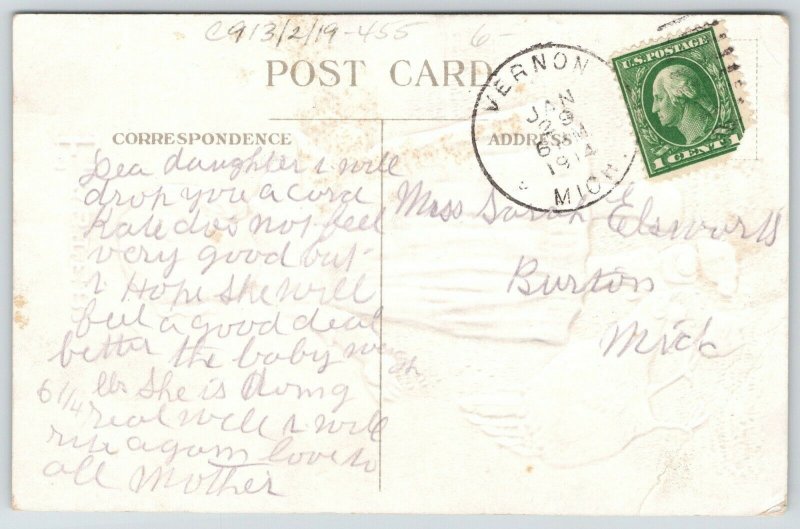 C913/2/19-455 6-
POST CARD
CORRESPONDENCE
ADDRESS
VERNON
JAN
9
6 M
1914
MICH.
U.S. POSTAGE
1 CENT 1
Dea daughter i will
drop you a card
Kate dos not feel
very good but
i Hope she will
feel a good deal
better the baby wegh
6 1/4 lb she is doing
real well i will
rite again love to
all Mother
Miss Sarah Elsworth
Burton
Mich